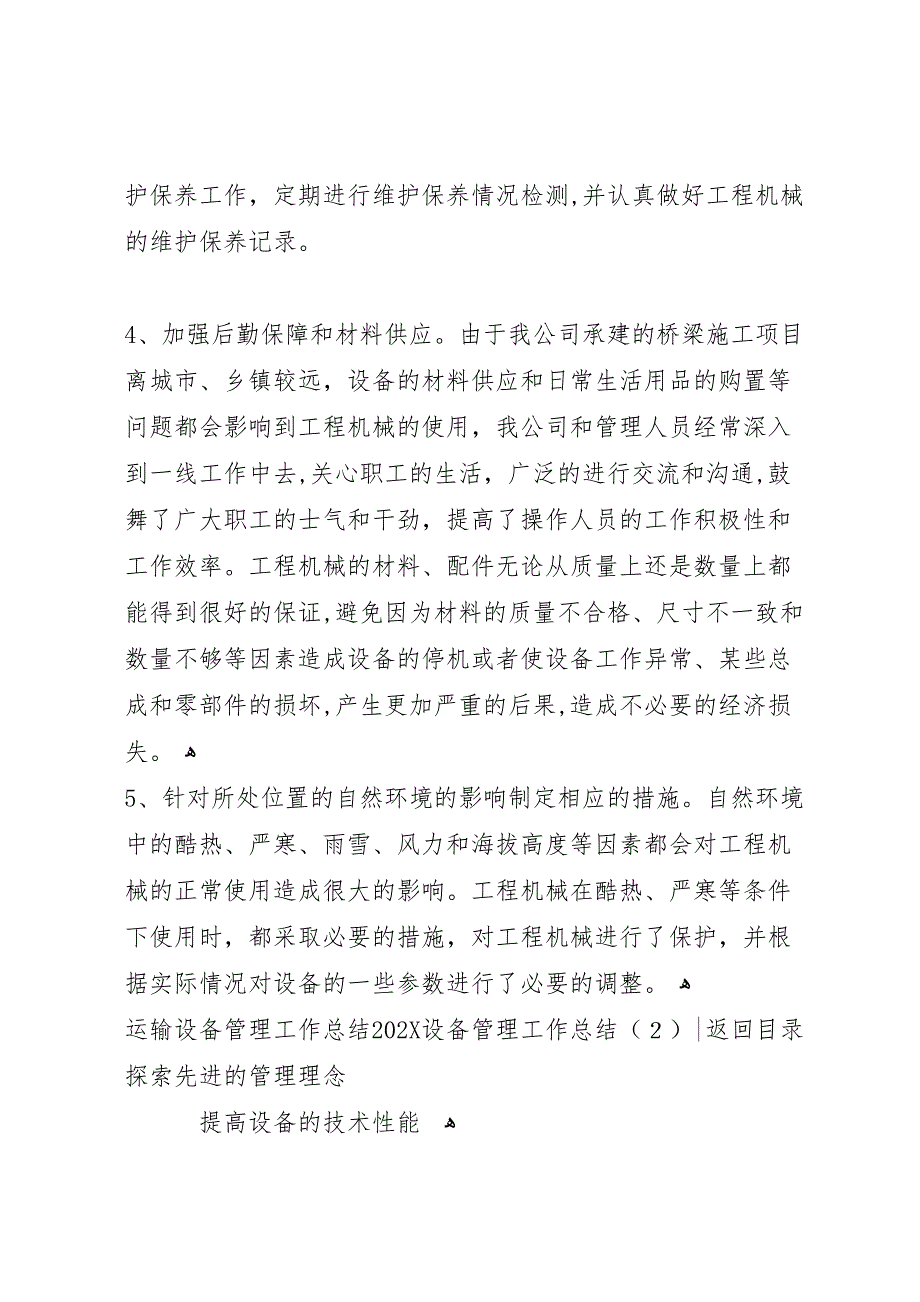 护保养工作，定期进行维护保养情况检测,并认真做好工程机械
的维护保养记录。
4、加强后勤保障和材料供应。由于我公司承建的桥梁施工项目
离城市、乡镇较远，设备的材料供应和日常生活用品的购置等
问题都会影响到工程机械的使用，我公司和管理人员经常深入
到一线工作中去,关心职工的生活，广泛的进行交流和沟通,鼓
舞了广大职工的士气和干劲，提高了操作人员的工作积极性和
工作效率。工程机械的材料、配件无论从质量上还是数量上都
能得到很好的保证,避免因为材料的质量不合格、尺寸不一致和
数量不够等因素造成设备的停机或者使设备工作异常、某些总
成和零部件的损坏,产生更加严重的后果,造成不必要的经济损
失。 ﻫ
5、针对所处位置的自然环境的影响制定相应的措施。自然环境
中的酷热、严寒、雨雪、风力和海拔高度等因素都会对工程机
械的正常使用造成很大的影响。工程机械在酷热、严寒等条件
下使用时，都采取必要的措施，对工程机械进行了保护，并根
据实际情况对设备的一些参数进行了必要的调整。 ﻫ
运输设备管理工作总结202X设备管理工作总结（2）|返回目录
探索先进的管理理念
提高设备的技术性能 ﻫ